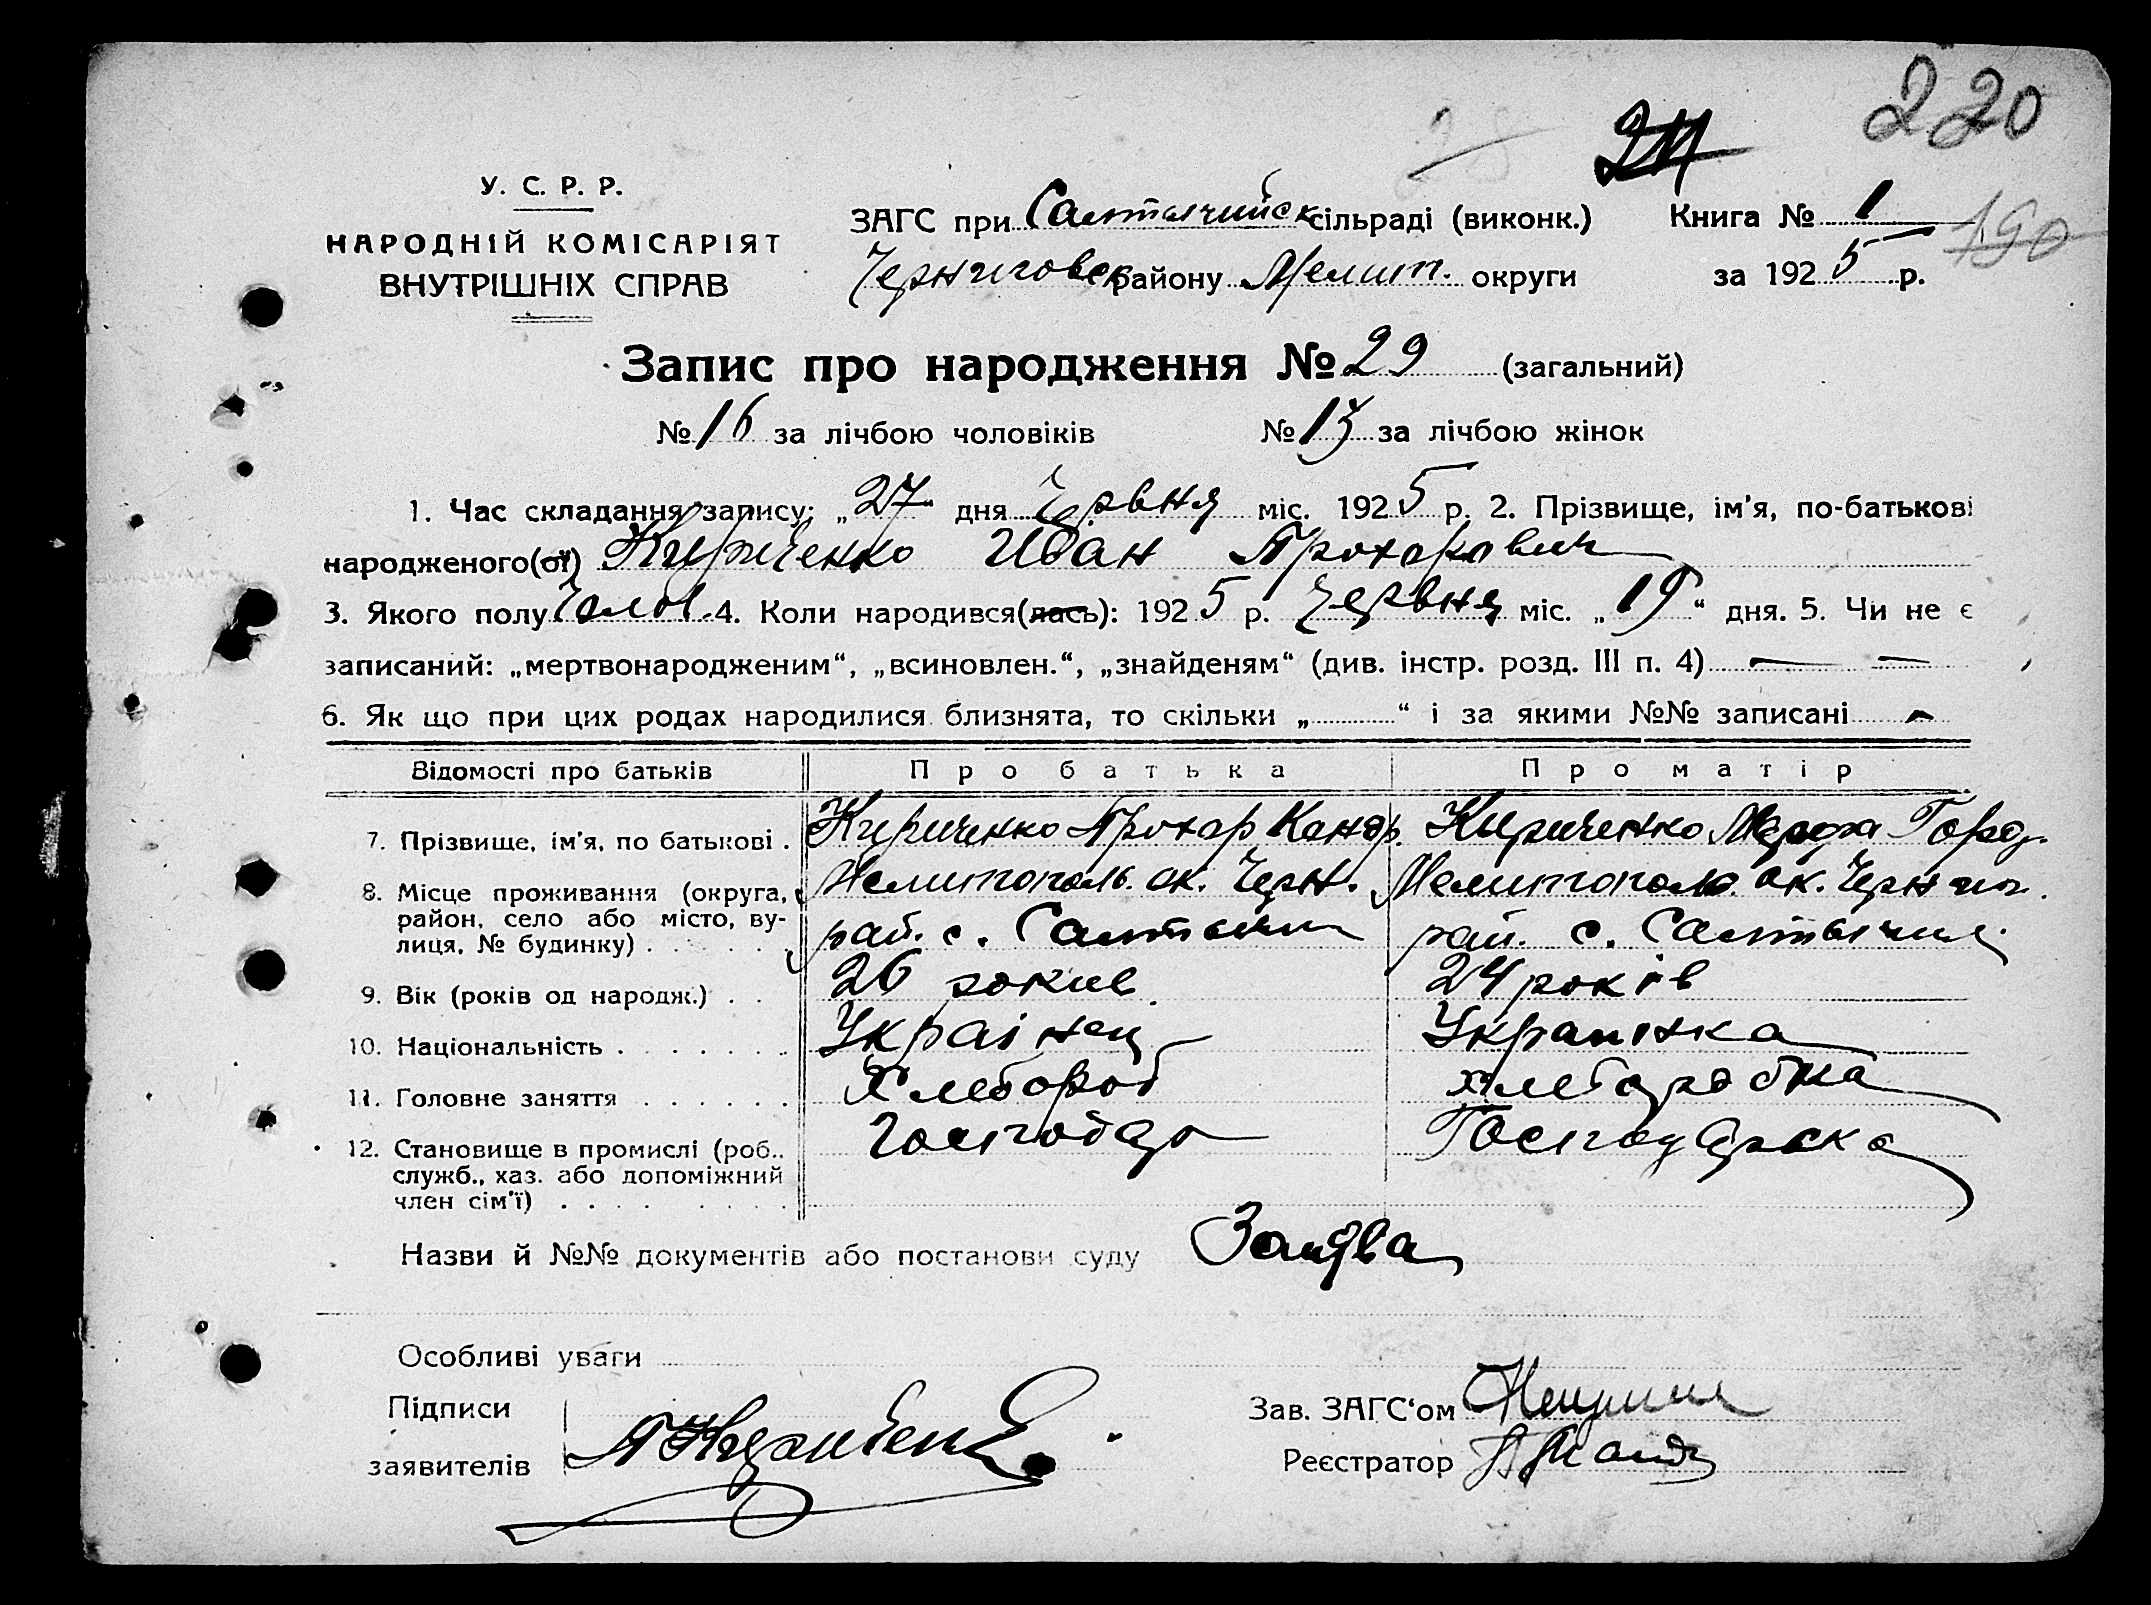 220
211
28
У. С. Р. Р.
НАРОДНІЙ КОМІСАРІЯТ
ВНУТРІШНІХ СПРАВ
ЗАГС при Салтычийск сільраді (виконк.) Книга № 1
190
Черниговск району Мелит. округи за 1925 р.
Запис про народження № 29 (загальний)
№ 16 за лічбою чоловіків № 13 за лічбою жінок
1. Час складання запису: „27“ дня Червня міс. 1925 р. 2. Прізвище, ім'я, по-батькові
народженого(ої) Кириченко Иван Прохарович
3. Якого полу Чолов. 4. Коли народився(лась): 1925 р. Червня міс. „19“ дня. 5. Чи не є
записаний: „мертвонародженим“, „всиновлен.“, „знайденям“ (див. інстр. розд. III п. 4) — —
6. Як що при цих родах народилися близнята, то скільки „.....“ і за якими №№ записані -
Відомості про батьків Про батька Про матір
7. Прізвище, ім'я, по батькові . Кириченко Прохар Кандр. Кириченко Марфа Горд.
8. Місце проживання (округа, Мелитополь. ок. Черн. Мелитополь. ок. Черниг.
район, село або місто, ву- рай. с. Салтычи рай. с. Салтычии
лиця, № будинку) . . . .
9. Вік (років од народж.) . . 26 рокив 24 років
10. Національність . . . . . . . Украінец Украинка
11. Головне заняття . . . . . . Хлебороб хлеборобка
12. Становище в промислі (роб., Господар Господарска
служб., хаз. або допоміжний
член сім'ї) . . . . . . . .
Назви й №№ документів або постанови суду Заява
Особливі уваги
Підписи Зав. ЗАГС'ом
заявителів Реєстратор